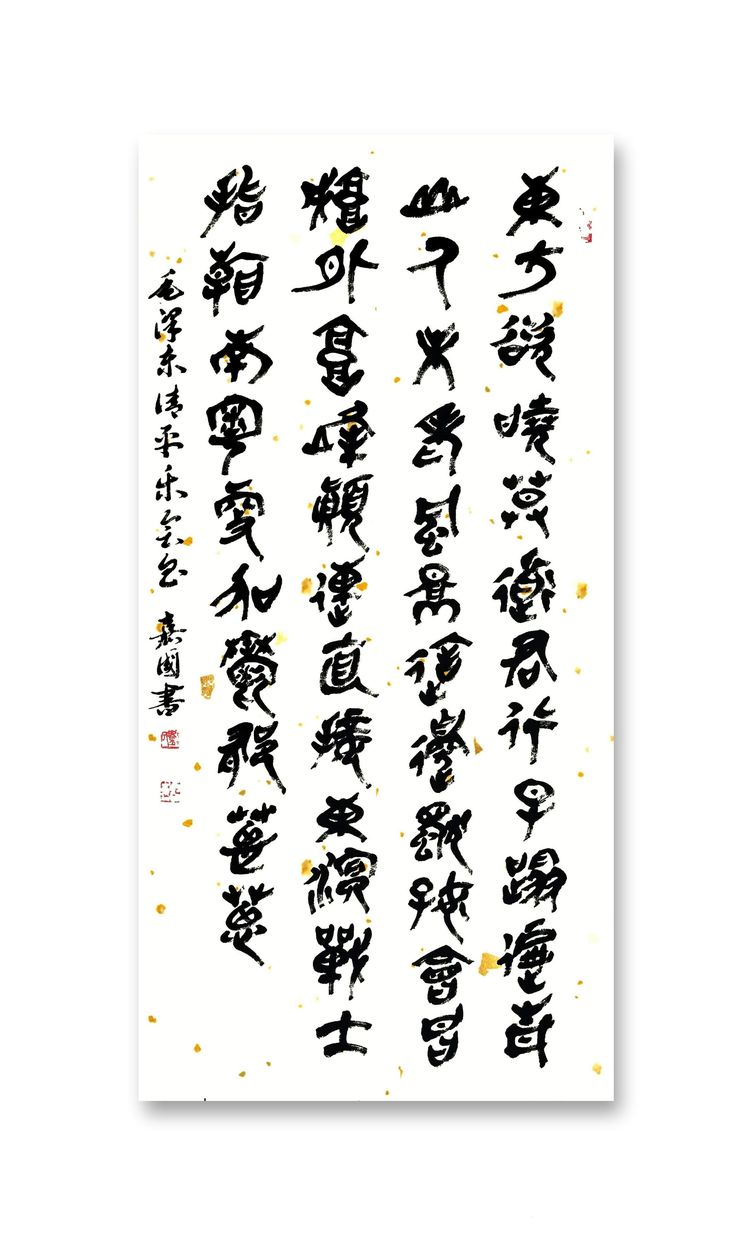 東方欲曉莫道君行早蹋遍青
山人未老風景這邊獨好會昌
城外高峰顛連直接東溟戰士
指看南粵更加鬱郁蔥蔥
毛澤东清平乐会昌 嘉國書